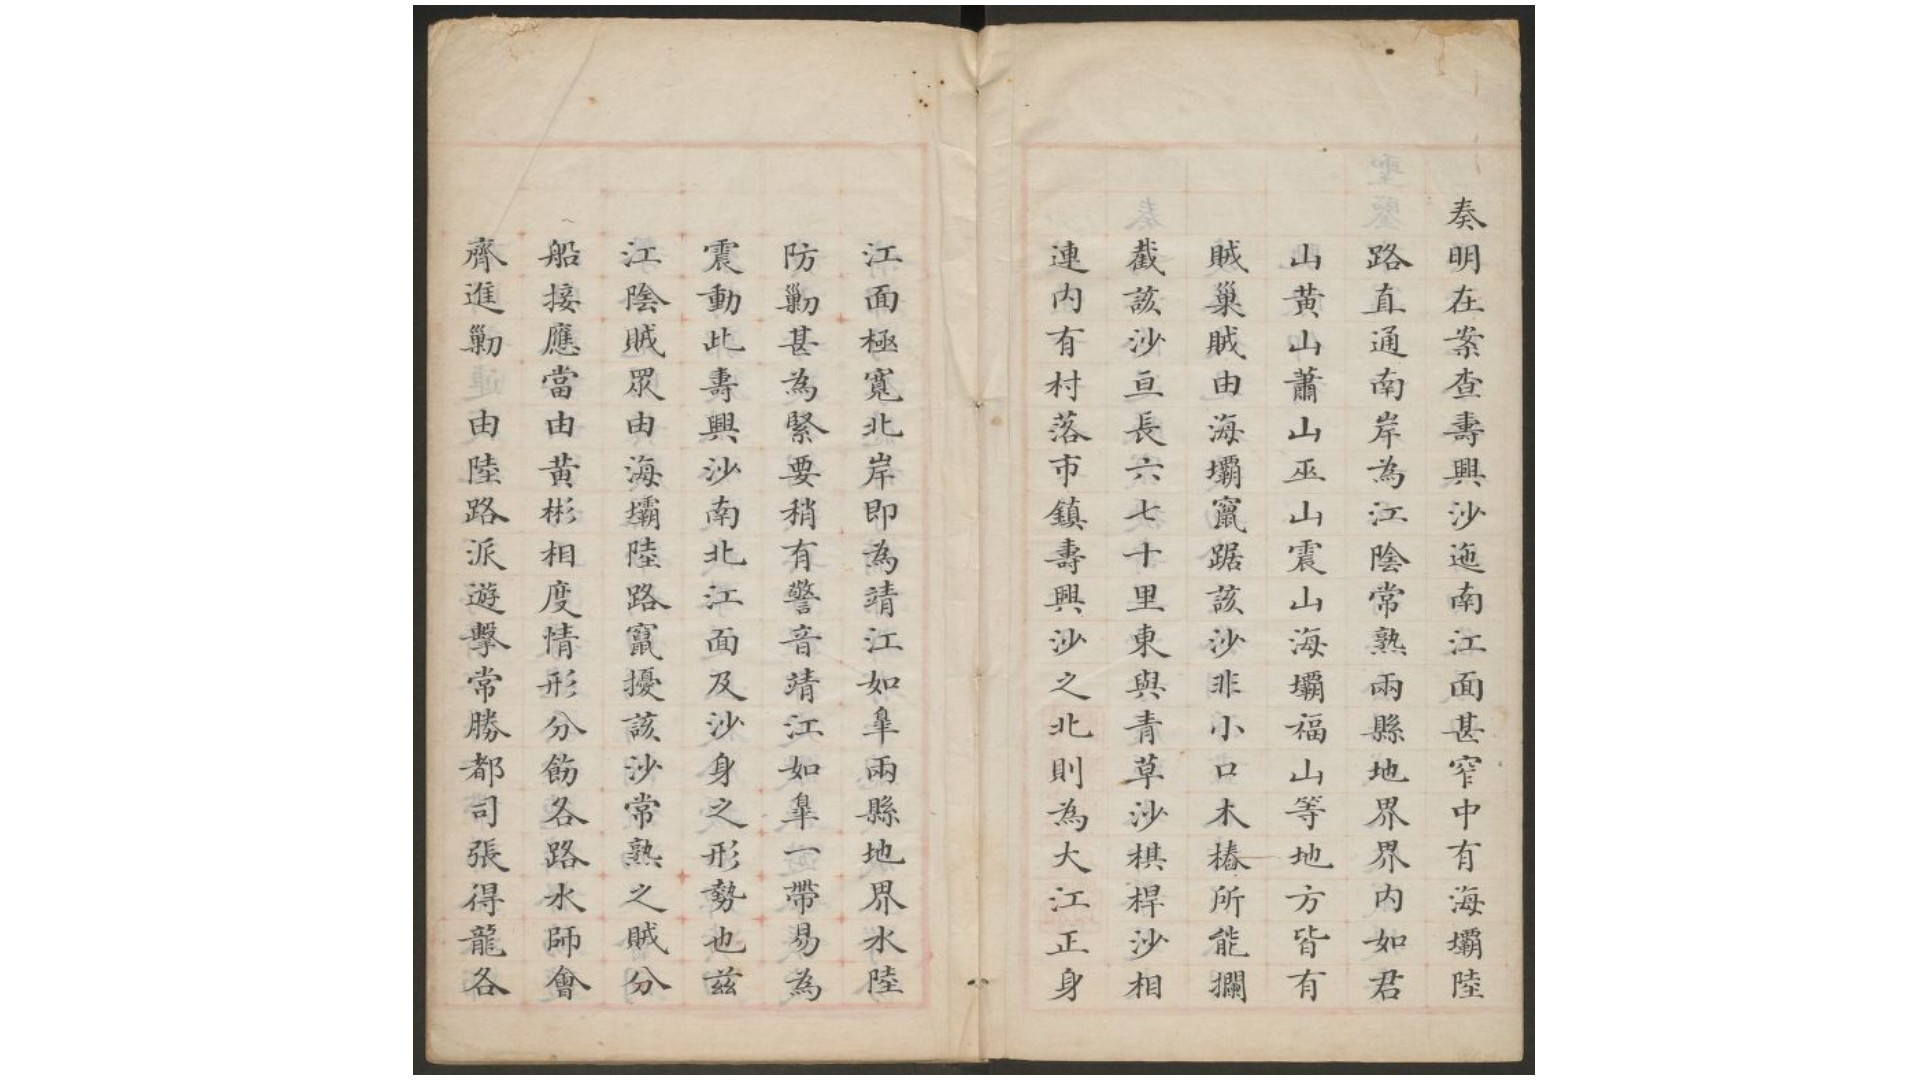 奏明在案查壽興沙迤南江面甚窄中有海壩陸
路直通南岸為江陰常熟兩縣地界界内如君
山黃山蕭山巫山震山海壩福山等地方皆有
賊巢賊由海壩竄踞該沙非小口木樁所能攔
截該沙亘長六七十里東與青草沙棋桿沙相
連内有村落市鎮壽興沙之北則為大江正身
江面極寬北岸即為靖江如臯兩縣地界水陸
防勦甚為緊要稍有警音靖江如臯一帶易為
震動此壽興沙南北江面及沙身之形勢也茲
江陰賊眾由海壩陸路竄擾該沙常熟之賊分
船接應當由黃彬相度情形分飭各路水師會
齊進勦由陸路派遊擊常勝都司張得龍各